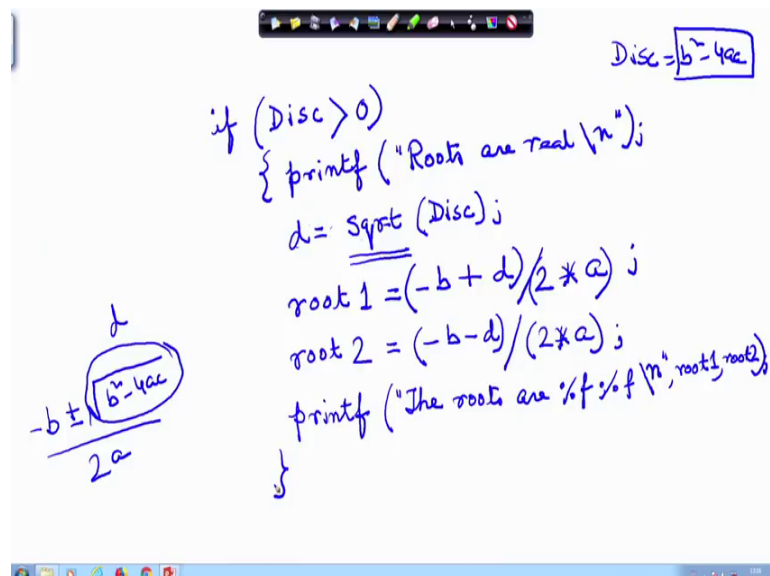 Disc = b² - 4ac
if (Disc > 0)
{ printf ("Roots are real \n");
d = sqrt (Disc);
root 1 = (-b + d)/(2 * a) ;
root 2 = (-b - d)/(2 * a) ;
printf ("The roots are %f %f \n", root1, root2);
}
d
-b ± √b² - 4ac
2a